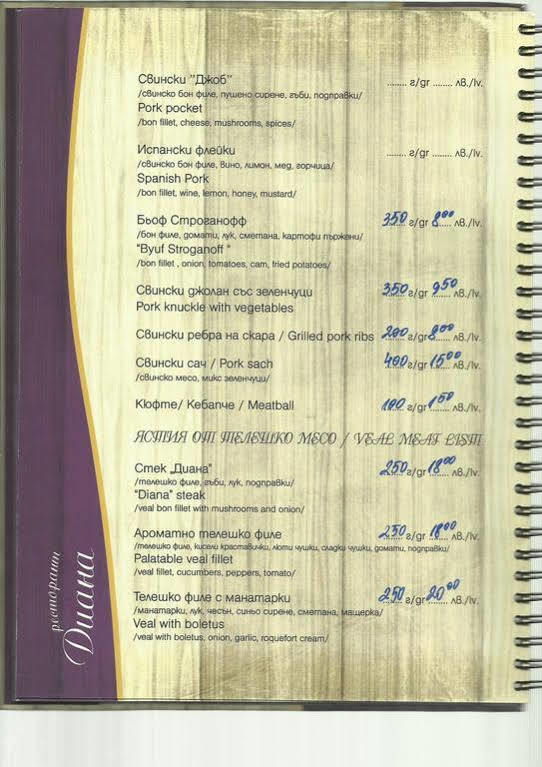 Свински "Джоб" ........ г/gr ........ лв./lv.
/свинско бон филе, пушено сирене, гъби, подправки/
Pork pocket
/bon fillet, cheese, mushrooms, spices/
Испански флейки ........ г/gr ........ лв./lv.
/свинско бон филе, вино, лимон, мед, горчица/
Spanish Pork
/bon fillet, wine, lemon, honey, mustard/
Бьоф Строганофф 350 г/gr 8⁰⁰ лв./lv.
/бон филе, домати, лук, сметана, картофи пържени/
"Byuf Stroganoff "
/bon fillet , onion, tomatoes, cam, fried potatoes/
Свински джолан със зеленчуци 350 г/gr 9⁵⁰ лв./lv.
Pork knuckle with vegetables
Свински ребра на скара / Grilled pork ribs 200 г/gr 8⁰⁰ лв./lv.
Свински сач / Pork sach 400 г/gr 15⁰⁰ лв./lv.
/свинско месо, микс зеленчуци/
Кюфте/ Кебапче / Meatball 100 г/gr 1⁵⁰ лв./lv.
ЯСТИЯ ОТ ТЕЛЕШКО МЕСО / VEAL MEAT LIST
Стек „Диана" 250 г/gr 18⁰⁰ лв./lv.
/телешко филе, гъби, лук, подправки/
"Diana" steak
/veal bon fillet with mushrooms and onion/
Ароматно телешко филе 250 г/gr 18⁰⁰ лв./lv.
/телешко филе, кисели краставички, люти чушки, сладки чушки, домати, подправки/
Palatable veal fillet
/veal fillet, cucumbers, peppers, tomato/
Телешко филе с манатарки 250 г/gr 20⁰⁰ лв./lv.
/манатарки, лук, чесън, синьо сирене, сметана, мащерка/
Veal with boletus
/veal with boletus, onion, garlic, roquefort cream/
ресторант
Диана